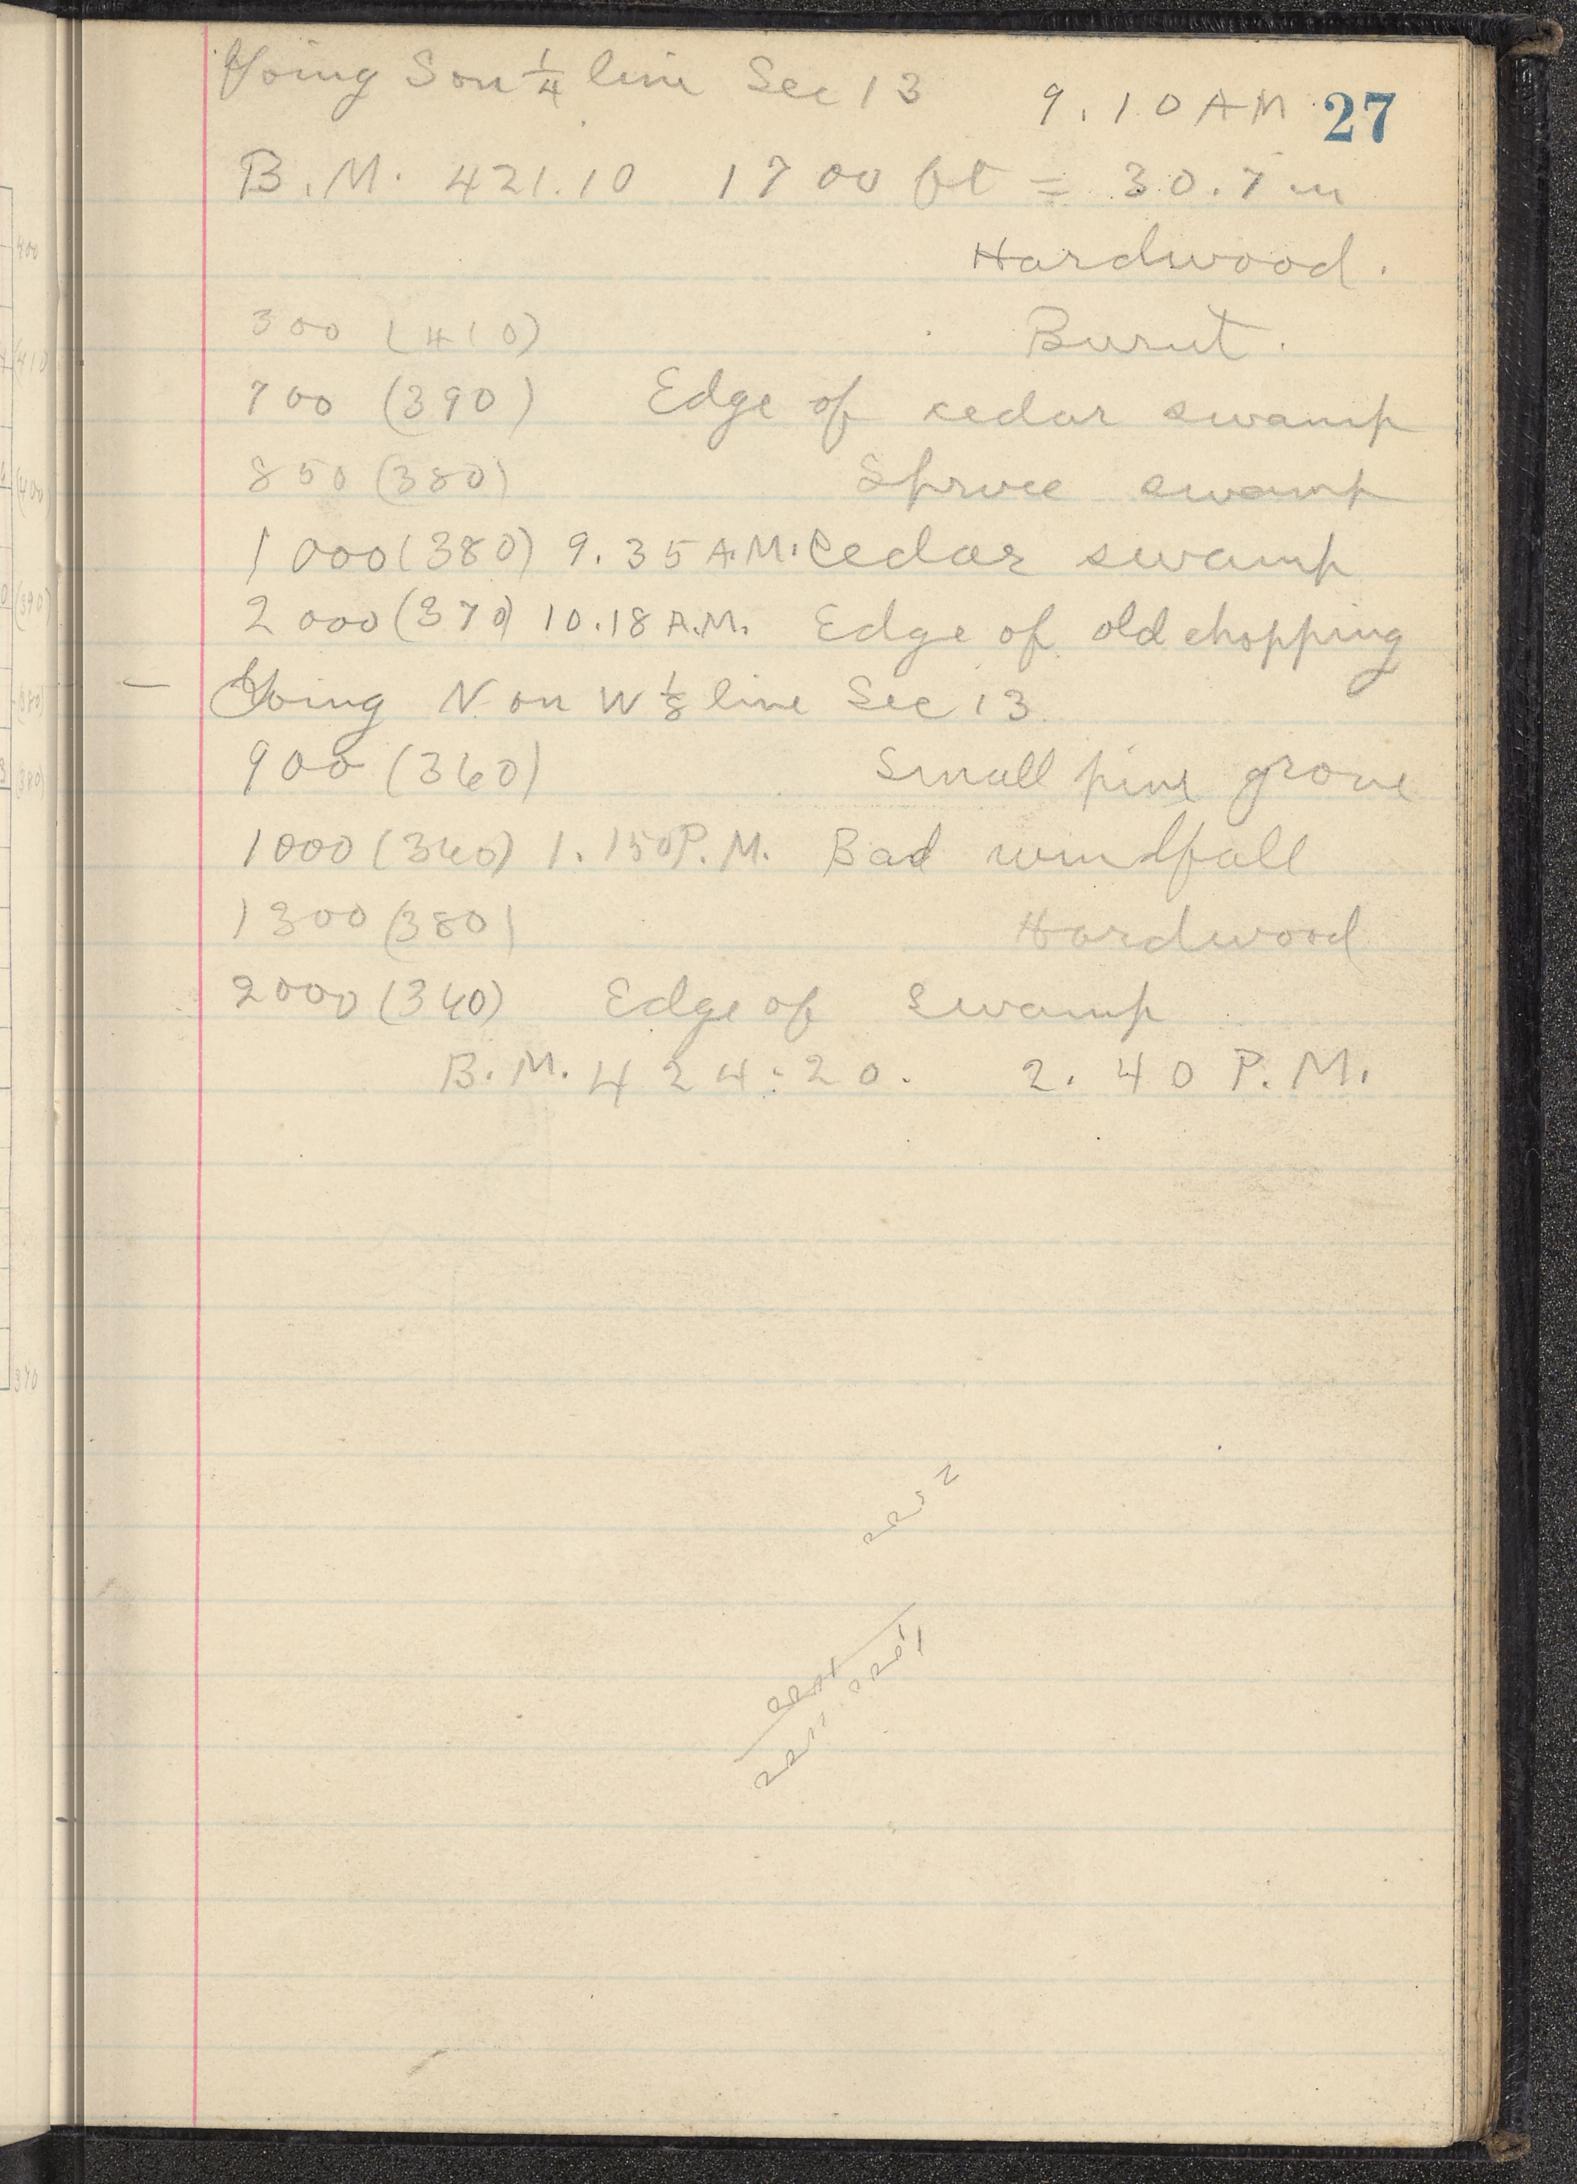 27
Going S on 1/4 line Sec 13 9.10 AM
B.M. 421.10 1700 ft = 30.7 in
Hardwood.
300 (410) Burnt.
700 (390) Edge of cedar swamp
850 (380) Spruce swamp
1000 (380) 9.35 A.M. Cedar swamp
2000 (370) 10.18 A.M. Edge of old chopping
— Going N on W 1/8 line Sec 13
900 (360) Small pine grove
1000 (360) 1.150 P.M. Bad windfall
1300 (380) Hardwood
2000 (340) Edge of swamp
B.M. 424:20. 2.40 P.M.